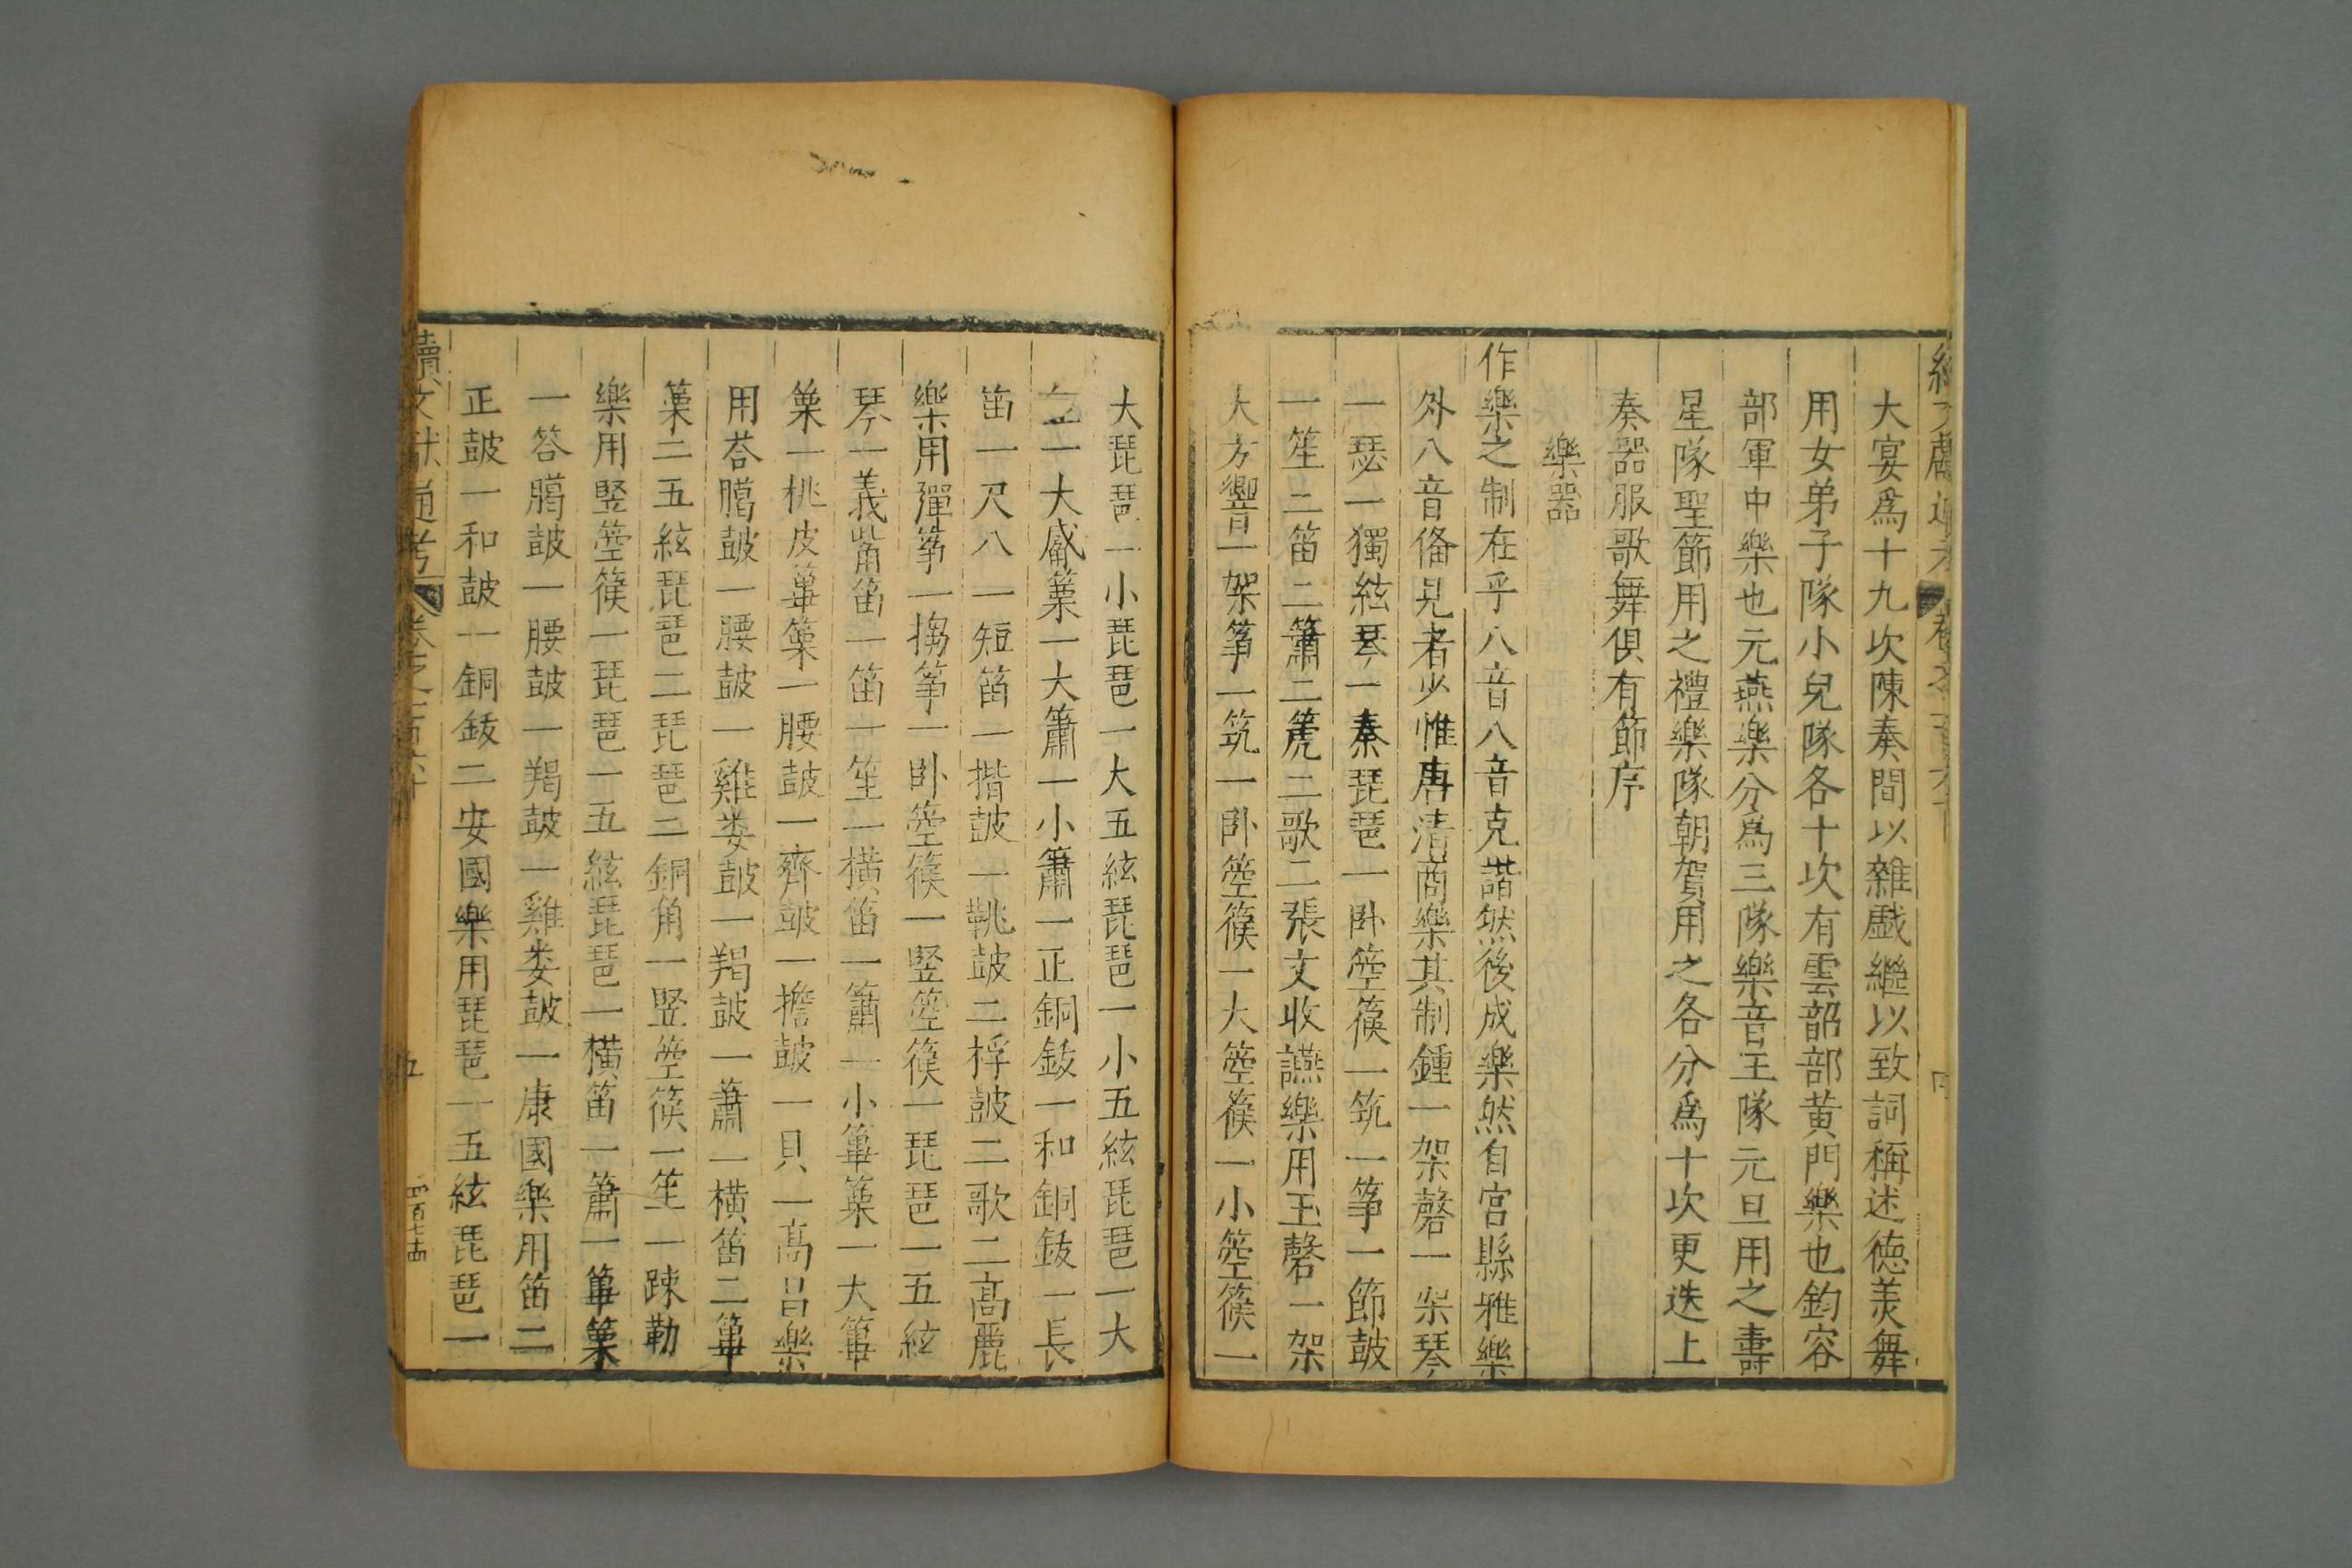 大宴爲十九次陳奏間以雜戯繼以致詞稱述徳美舞
用女弟子隊小兒隊各十次有雲韶部黄門樂也鈞容
部軍中樂也元燕樂分爲三隊樂音王隊元旦用之壽
星隊聖節用之禮樂隊朝賀用之各分爲十次更迭上
奏器服歌舞俱有節序
樂器
作樂之制在乎八音八音克諧然後成樂然自宫縣雅樂
外八音俻見者少惟唐清商樂其制鍾一架磬一架琴
一瑟一獨絃琴一秦琵琶一卧箜篌一筑一筝一節鼓
一笙二笛二簫二篪二歌二張文收讌樂用玉磬一架
大方響一架筝一筑一卧箜篌一大箜篌一小箜篌一
大琵琶一小琵琶一大五絃琵琶一小五絃琵琶一大
笙一大觱篥一大簫一小簫一正銅鈸一和銅鈸一長
笛一尺八一短笛一揩鼓一鞉鼓二桴鼓二歌二高麗
樂用彈筝一搊筝一卧箜篌一竪箜篌一琵琶一五絃
琴一義觜笛一笛一笙一横笛一簫一小篳篥一大篳
篥一桃皮篳篥一腰鼓一齊鼓一擔鼓一貝一高昌樂
用荅臈鼓一腰鼓一雞婁鼓一羯鼓一簫一横笛二篳
篥二五絃琵琶二琵琶二銅角一竪箜篌一笙一踈勒
樂用竪箜篌一琵琶一五絃琵琶一横笛一簫一篳篥
一答臈鼓一腰鼓一羯鼓一雞婁鼓一康國樂用笛二
正鼓一和鼓一銅鈸二安國樂用琵琶一五絃琵琶一
續文獻通考 卷之一百六十 五